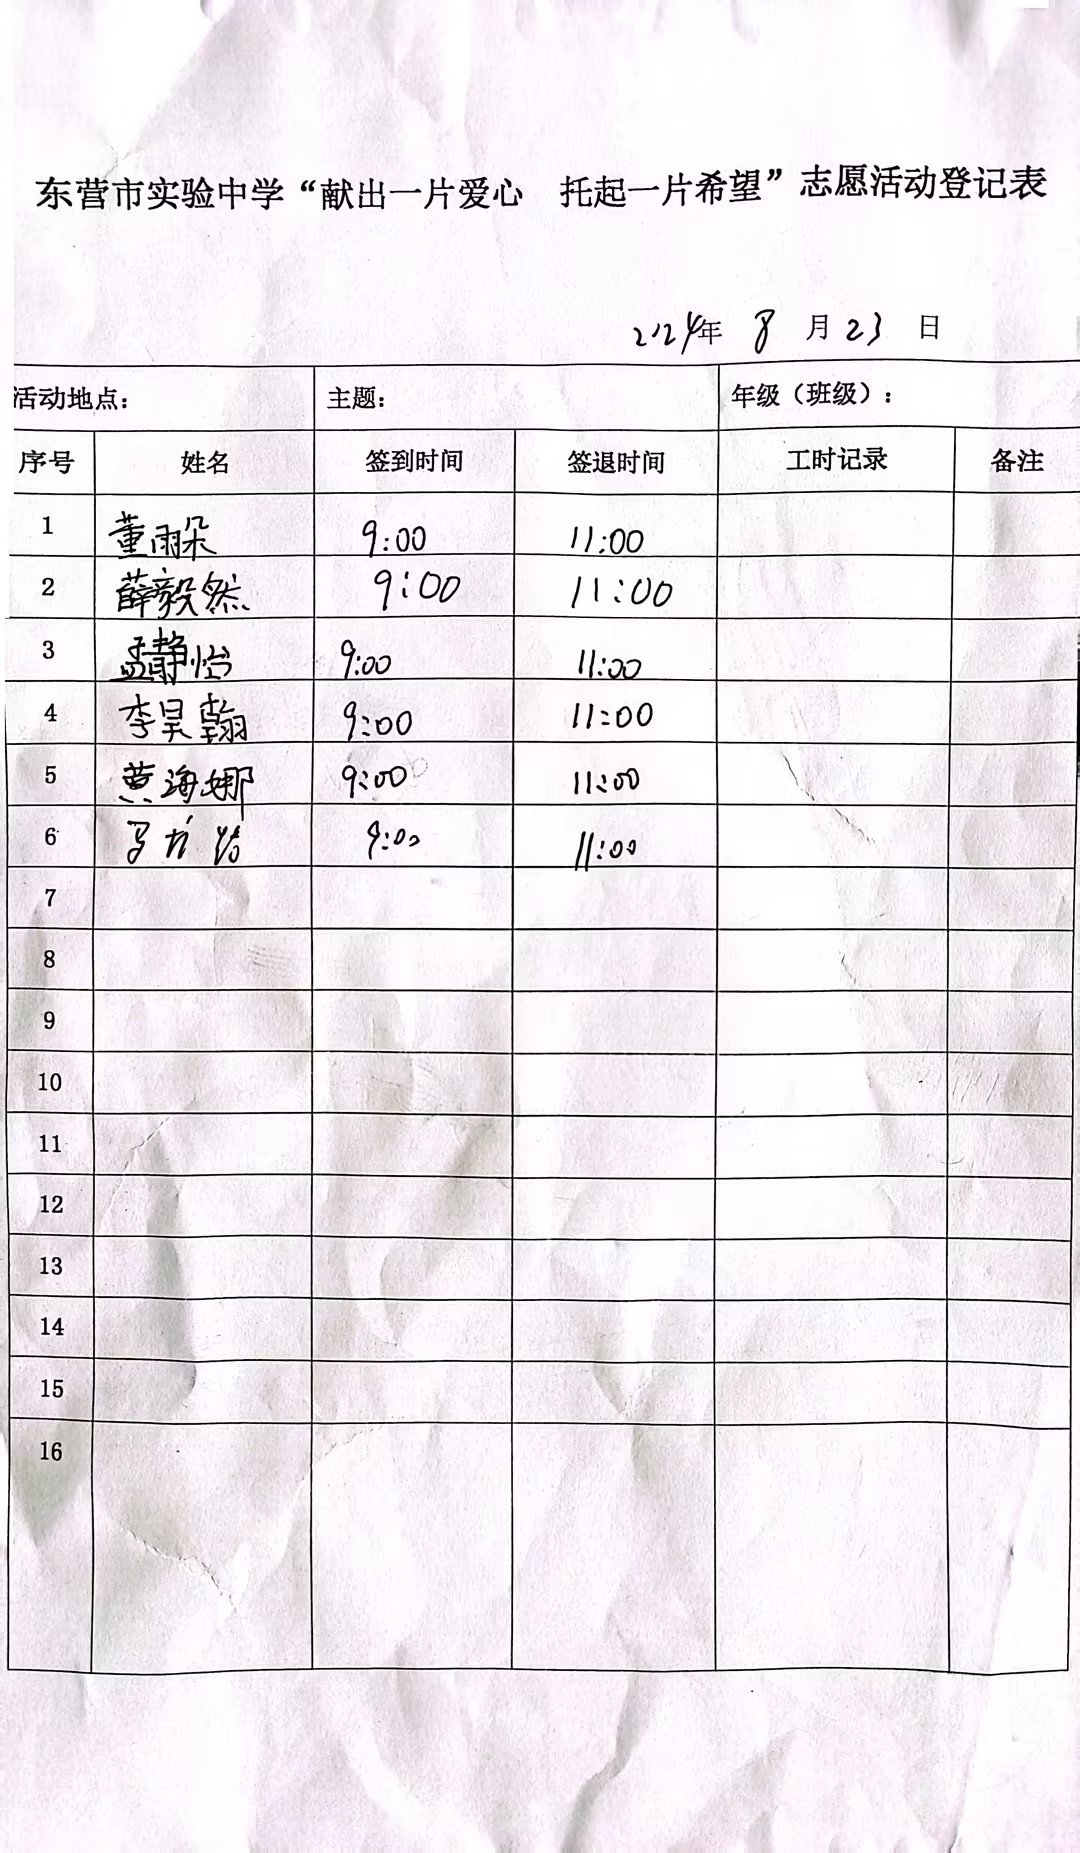 东营市实验中学“献出一片爱心　托起一片希望”志愿活动登记表
2024年 8 月 23 日
活动地点： 主题： 年级（班级）：
序号 姓名 签到时间 签退时间 工时记录 备注
1 董雨朵 9:00 11:00
2 薛毅然 9:00 11:00
3 孟静怡 9:00 11:00
4 李昊翰 9:00 11:00
5 黄海娜 9:00 11:00
6 9:00 11:00
7
8
9
10
11
12
13
14
15
16